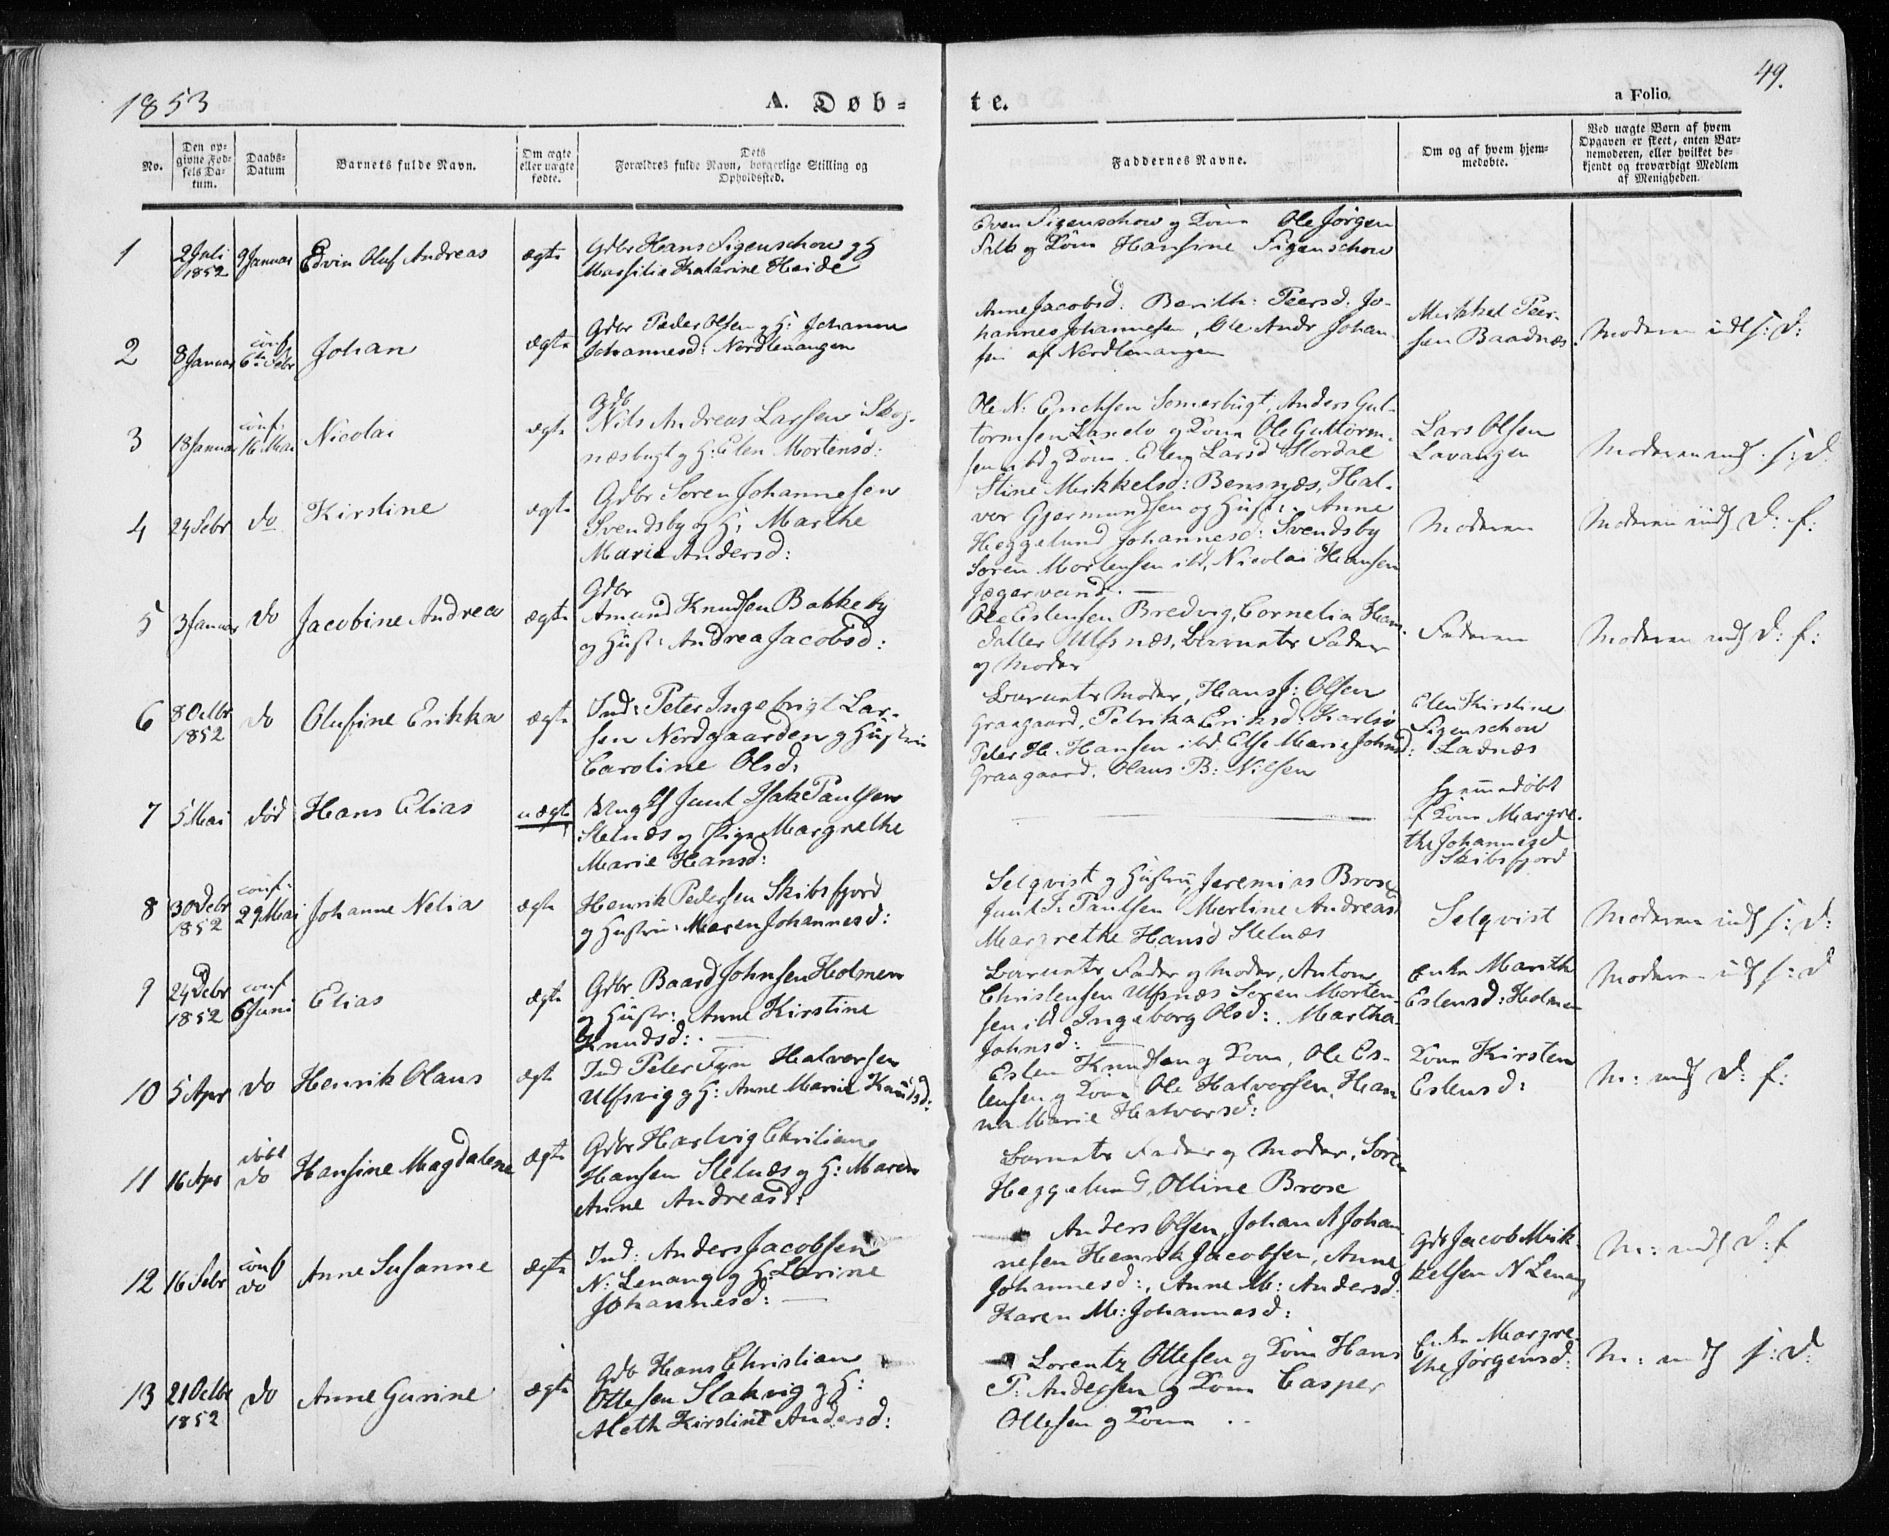 1853
A. Døb-
te.
49.
a Folio.
No.
Den op-
givne Fød-
sels Da-
tum.
Daabs-
Datum
Barnets fulde Navn.
Om ægte
eller uægte
fødte.
Dets
Forældres fulde Navn, borgerlige Stilling og
Opholdssted.
Faddernes Navne.
Om og af hvem hjem-
medøbte.
Ved uægte Børn af hvem
Opgaven er skeet, enten Bar-
nemoderen, eller hvilket be-
kjendt og troværdigt Medlem
af Menigheden.
1
2 Juli
1852
9 Januar
Edvin Oluf Andreas
ægte
Gdbr Hans Figenschow og H
Massilia Katarine Heide
Even Figenschow og Kone Ole Jørgen
og Kone Hansine Figenschow
2
8 Januar
conf
6te Febr
Johan
ægte
Gdbr Peder Olsen og H: Johanna
Johannesd: Nordlenangen
Anne Jacobsd: Berith: Peersd: Jo-
hannes Johannesen, Ole Andr Johan-
sen af Nordlenangen
Mikkel Peer-
sen Baadnæs.
Moderen indl s: D:
3
18 Januar
conf:
16 Mai
Nicolai
ægte
Gdb
Nils Andreas Larsen Skog-
næsbugt og H: Elen Mortensd:
Ole N: Erichsen Somerbugt, Anders Gut-
tormsen Lanelv og Kone Ole Guttorm-
sen ibd og Kone. Elen Larsd Stordal
Lars Olsen
Lavangen
Moderen indl s: D:
4
24 Febr
do
Kirstine
ægte
Gdbr Søren Johannesen
Svendsby og H: Marthe
Marie Andersd:
Stine Mikkelsd: Bensnæs, Hal-
vor Gjermundsen og Hustr: Anne
Heggelund Johannesd: Svendsby
Søren Mortensen ibd, Nicolai Hansen
Jægervand. —
Moderen
Moderen indl D: f:
5
3 Januar
do
Jacobine Andrea
ægte
Gdbr
Amund Knudsen Bakkeby
og Hustr: Andrea Jacobsd:
Ole Estensen Bredvig, Cornelia Hans-
datter Ulfsnæs, Barnets Fader
og Moder
Faderen
Moderen indl D: f:
6
8 Octbr
1852
do
Olufine Erikka
ægte
Ind: Peter Ingebrigt Lar-
sen Nordgaarden og Hustru
Caroline Olsd:
Barnets Moder, Hans J: Olsen
Graagaard, Petrika Eriksd: Karlsø
Peter H. Hansen ibd Else Marie Johnsd:
Graagaard. Olaus B: Nilsen
Elen Kirstine
Figenschow
Ladnæs
7
5 Mai
død
Hans Elias
uægte
Ungk Junt Isak Paulsen
Stelnæs og Pige Margrethe
Marie Hansd:
Hjemmedøbt
af Kone Margre-
the Johannesd
Skibsfjord
8
30 Debr
1852
conf:
29 Mai
Johanne Nelia
ægte
Henrik Pedersen Skibsfjord
og Hustru: Maren Johannesd:
Selqvist og Hustru, Jeremias Brose
Junt I: Paulsen Merline Andreasd
Margrethe Hansd Stelnæs
Selqvist
Moderen indl s: D:
9
24 Debr
1852
conf
6 Juni
Elias
ægte
Gdbr Baard Johnsen Holmen
og Hustr: Anne Kirstine
Knudsd: —
Barnets Fader og Moder, Anton
Christensen Ulfsnæs Søren Morten-
sen ibd Ingeborg Olsd: Martha
Johnsd:
Enke Marith
Estensd: Holmen
Moderen indl s: D
10
5 Apr
do
Henrik Olaus
ægte
Ind Peter Fyn Halvorsen
Ulfsvig og H: Anne Marie Knudsd:
Esten Knudsen og Kone, Ole Es-
tensen og Kone Ole Halvorsen, Han-
na Marie Halvorsd:
Kone Kirsten
Estensd:
M: indl D: f:
11
16 Apr
døbt
do
Hansine Magdalene
ægte
Gdbr Hartvig Christian
Hansen Stelnæs og H: Maren
Anne Andreasd:
Barnets Fader og Moder, Søren
Heggelund, Olline Brose
12
16 Febr
conf
do
Anne Susanne
ægte
Ind: Anders Jacobsen
N: Lenang og H: Lorine
Johannesd: —
Anders Olsen, Johan A Johan-
nesen Henrik Jacobsen, Anne
Johannesd:, Anne M: Andersd:
Karen M: Johannesd:
Gdb Jacob Mik-
kelsen N Lenang
M: indl D: f
13
21 Octbr
1852
do
Anne Gurine
ægte
Gdb Hans Christian
Ottesen Slakvig og H:
Aleth Kirstine Andersd:
Lorentz Ottesen og Kone Hans
P: Andersen og Kone Casper
Ottesen og Kone
Enke Margre-
the Jørgensd:
M: indl s: D: